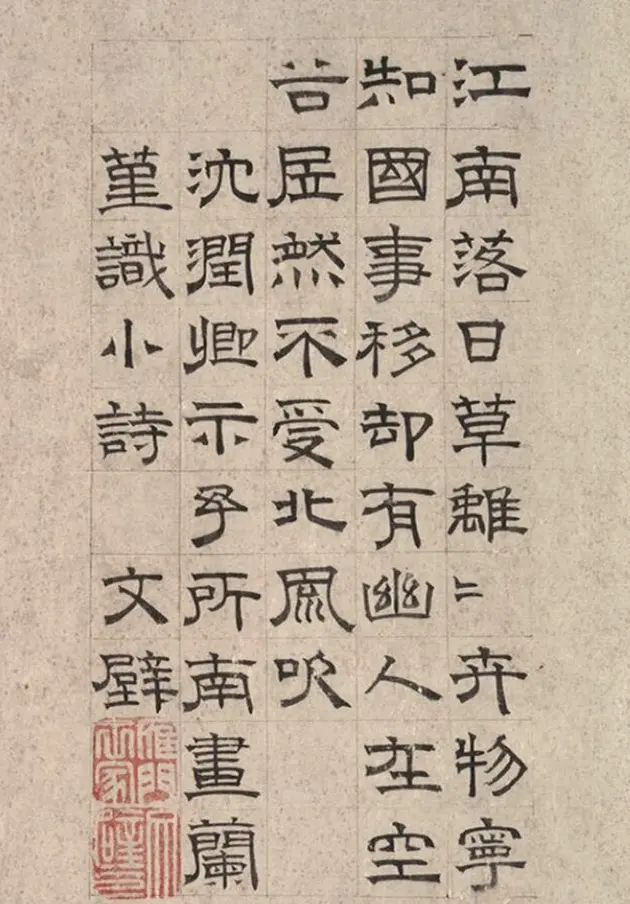 江南落日草離〻卉物寧
知國事移却有幽人在空
谷居然不受北風吹
沈潤卿示予所南畫蘭
菫識小詩 文壁